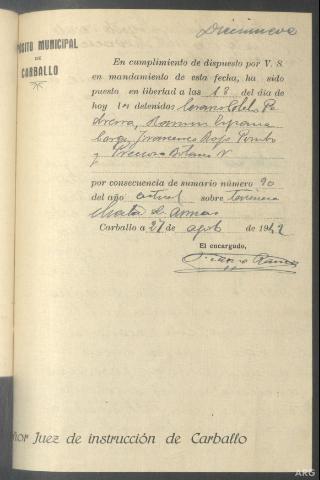 Diecinueve
PÓSITO MUNICIPAL
DE
CARBALLO
En cumplimiento de dispuesto por V. S.
en mandamiento de esta fecha, ha sido
puesto en libertad a las 18 del día de
hoy los detenidos
Ramon
Francisco Rojo Pombo
y
por consecuencia de sumario número 90
del año actual sobre tenencia
de armas
Carballo a 27 de agosto de 1942
El encargado,
ñor Juez de instrucción de Carballo
ARG